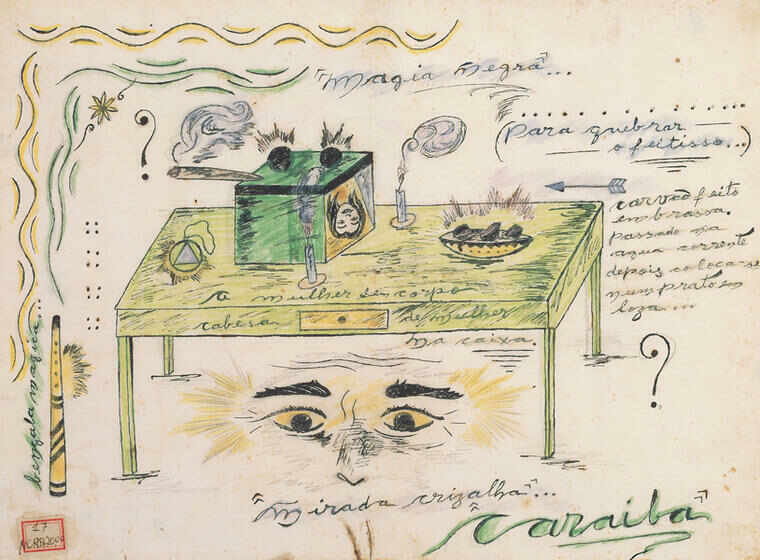 "Magia Negra"...
(Para quebrar
o feitisso...)
carvão feito
em brassa.
Passado na
agua corrente
depois coloca-se
num prato em
loza...
A mulher sen corpo
cabesa de mulher
na caixa.
bengala magica...
"Mirada crizalha"...
"Caraiba"
17